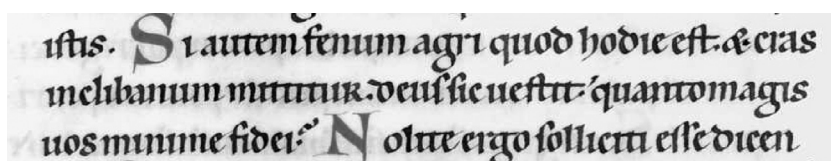 istis. Si autem fenum agri quod hodie est. & cras
inclibanum mittitur. deus sic uestit. quanto magis
uos minime fidei. Nolite ergo solliciti esse dicen